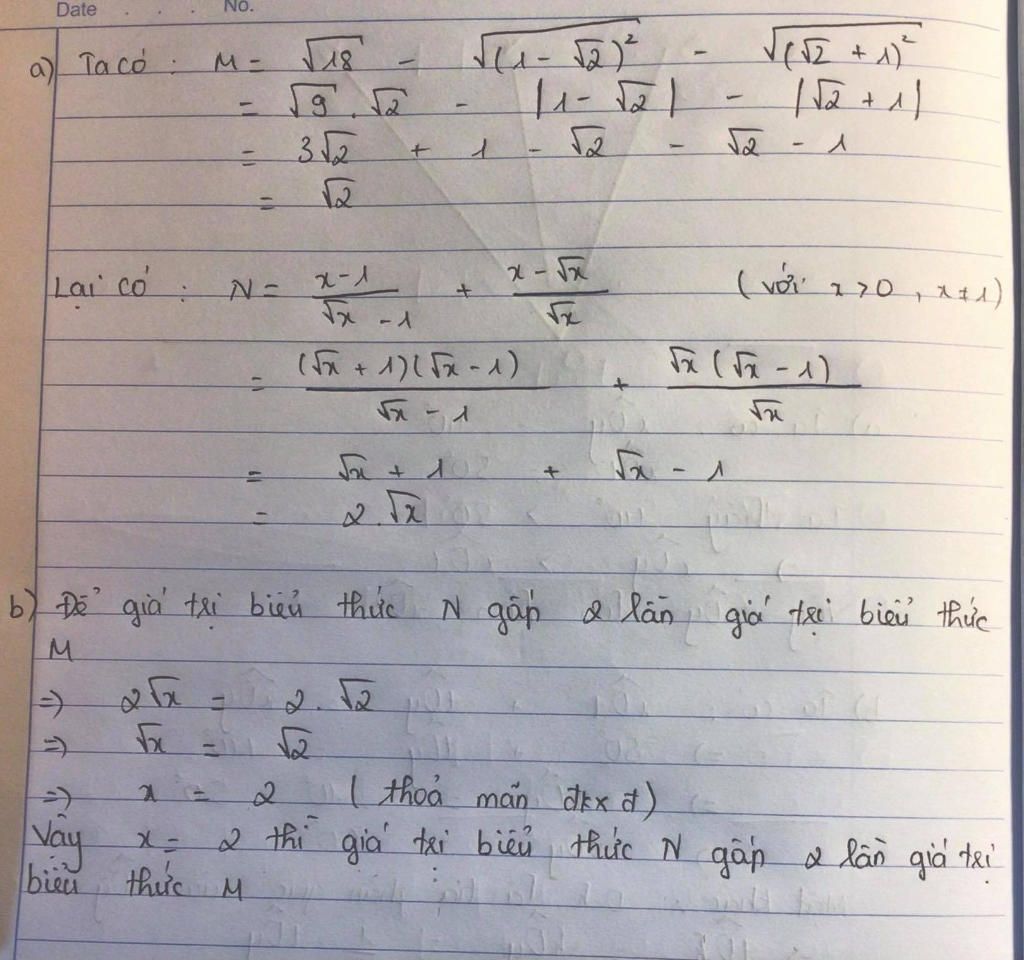 Date . . . No.
a) Ta có : M = √18 - √(1 - √2)² - √(√2 + 1)²
= √9 . √2 - |1 - √2| - |√2 + 1|
= 3√2 + 1 - √2 - √2 - 1
= √2
Lại có : N = (x - 1)/(√x - 1) + (x - √x)/√x (với x > 0, x ≠ 1)
= (√x + 1)(√x - 1)/(√x - 1) + √x (√x - 1)/√x
= √x + 1 + √x - 1
= 2.√x
b) Để giá trị biểu thức N gấp 2 lần giá trị biểu thức
M
=> 2√x = 2 . √2
=> √x = √2
=> x = 2 (thoả mãn đkxđ)
Vậy x = 2 thì giá trị biểu thức N gấp 2 lần giá trị
biểu thức M